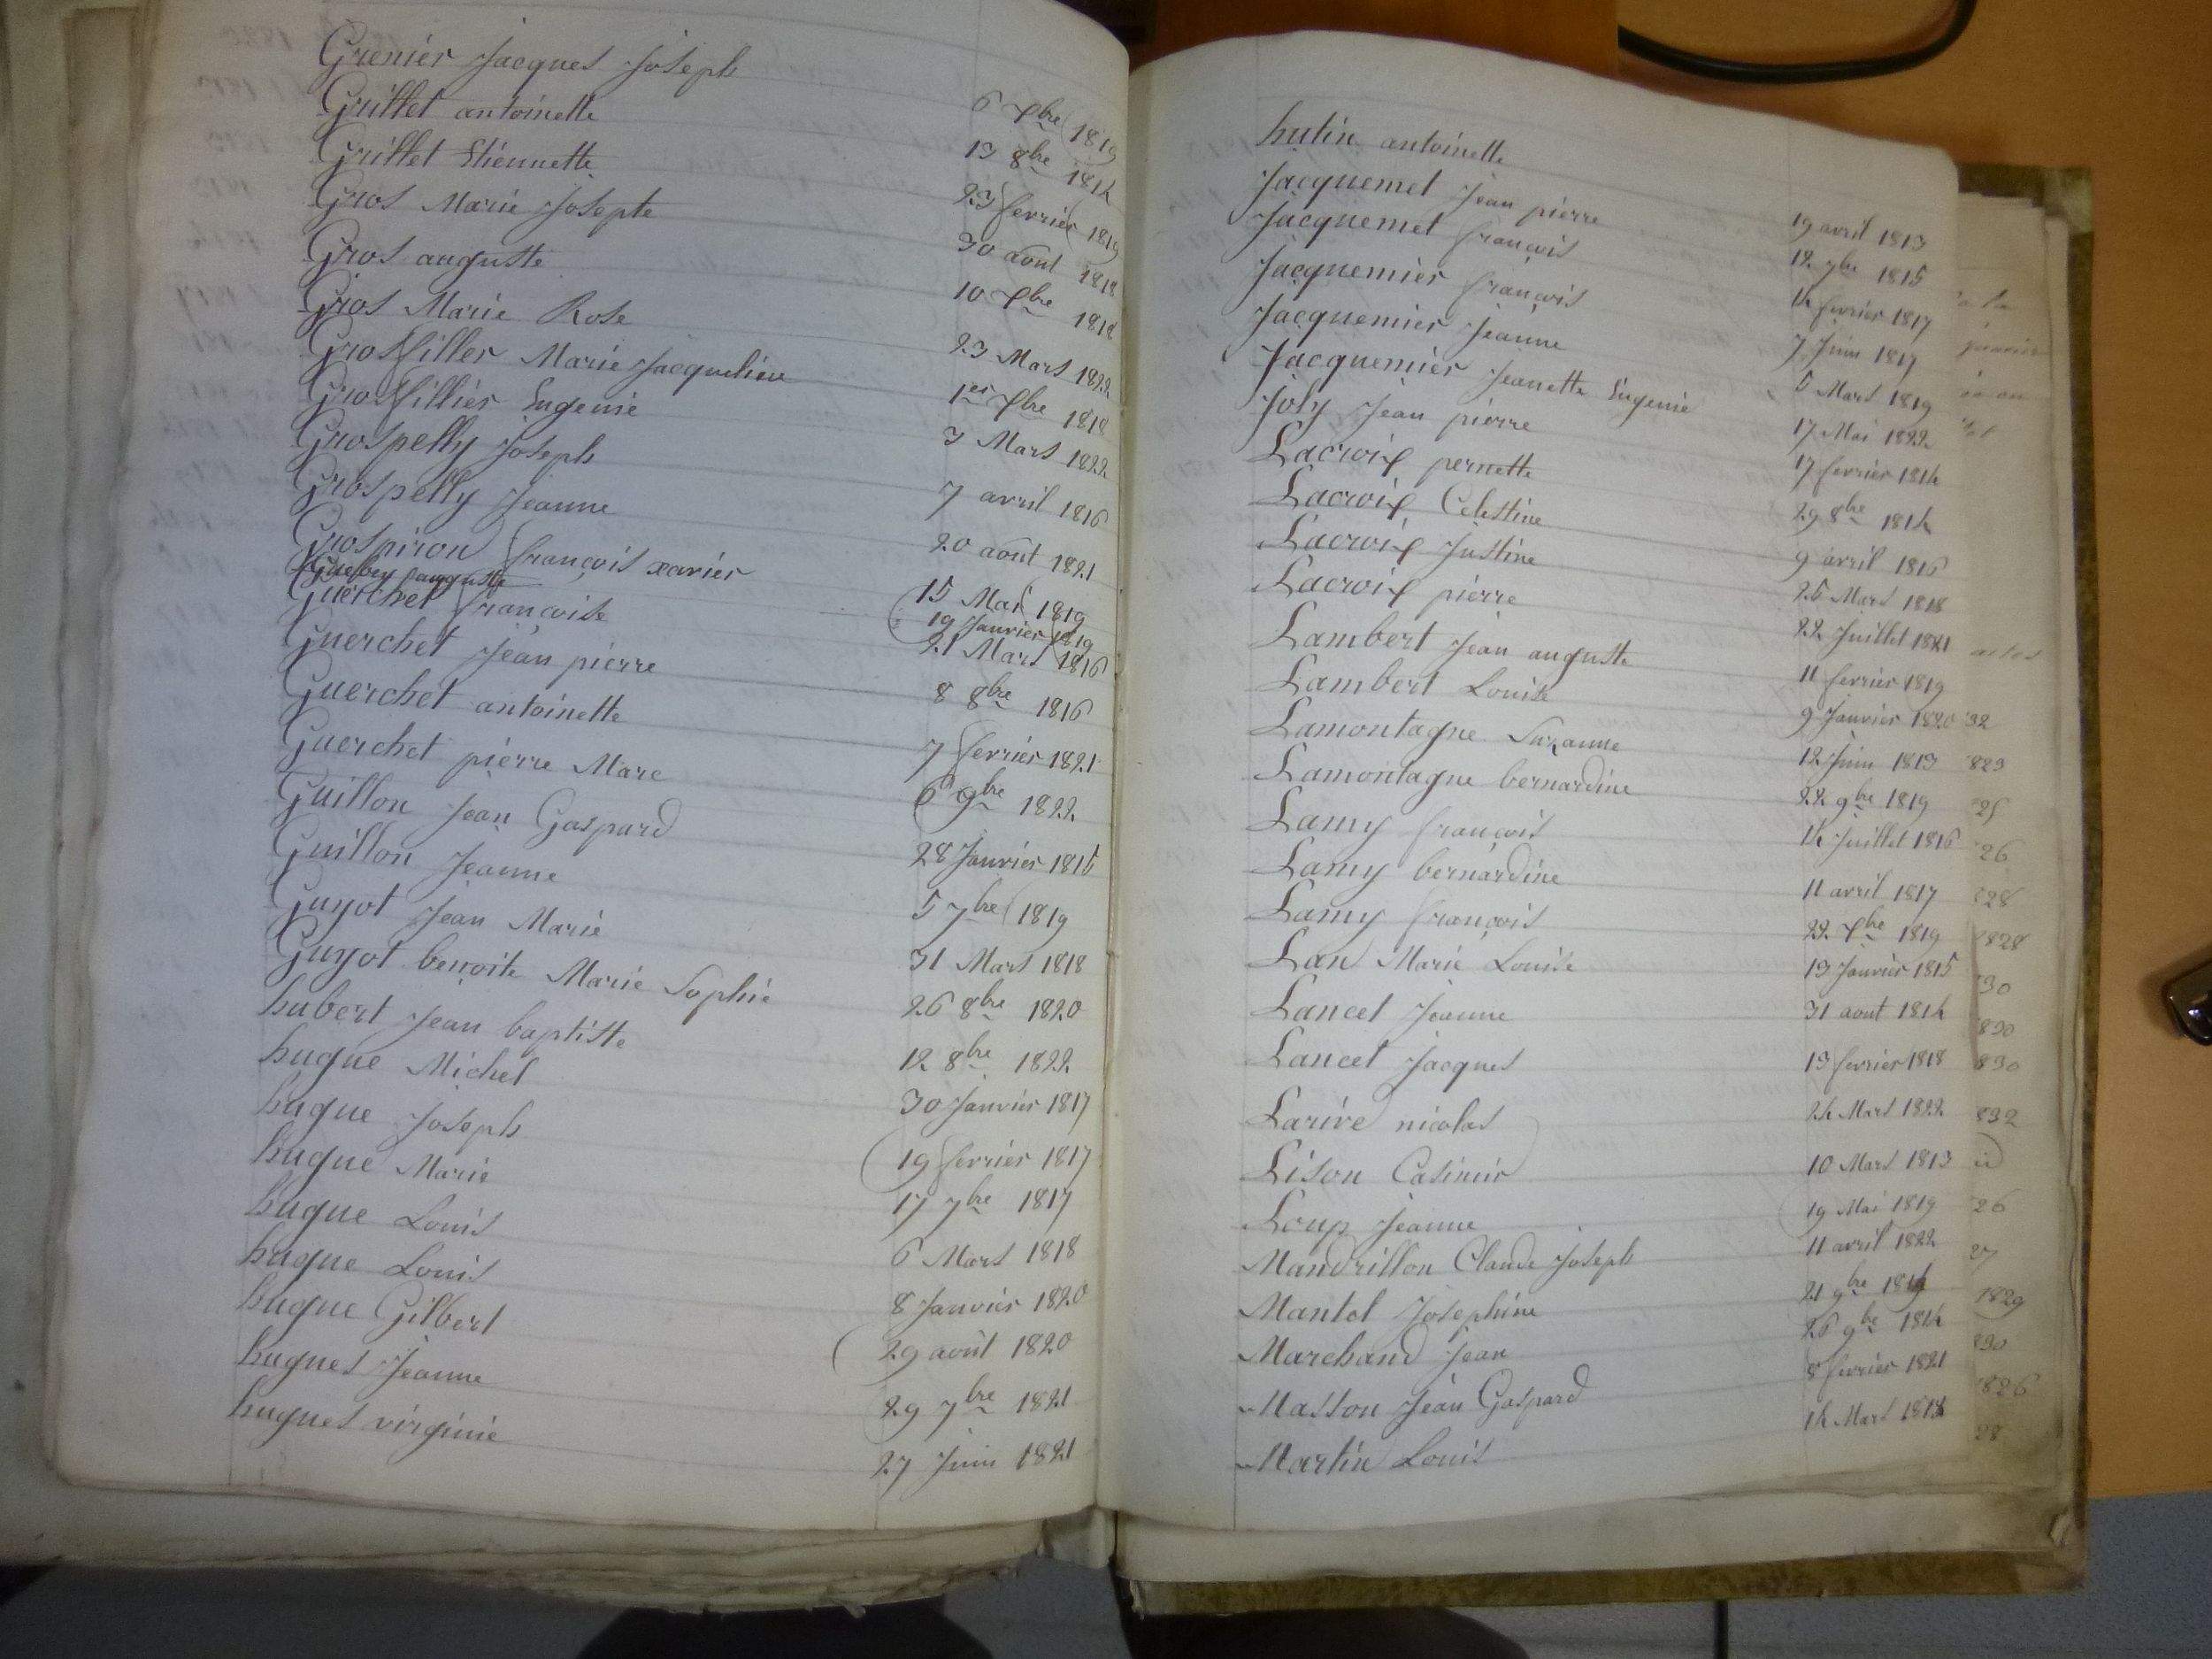 Grenier Jacques Joseph 6 Xbre 1819
Grillet antoinette 13 8bre 1814
Grillet Etiennette 23 fevrier 1819
Gros Marie Josepte 30 aout 1818
Gros auguste 10 Xbre 1818
Gros Marie Rose 23 Mars 1822
Grosfiller Marie Jacqueline 1er Xbre 1818
Grosfillier Eugenie 3 Mars 1822
Grospelly Joseph 7 avril 1816
Grospelly Jeanne 20 aout 1821
Grospiron françois xavier 15 Mai 1819
auguste 19 Janvier 1819
Guerchet françoise 21 Mars 1816
Guerchet Jean pierre 8 8bre 1816
Guerchet antoinette 7 fevrier 1821
Guerchet pierre Marc 6 9bre 1822
Guillon Jean Gaspard 28 Janvier 1815
Guillon Jeanne 5 7bre 1819
Guyot Jean Marie 31 Mars 1818
Guyot benoite Marie Sophie 26 8bre 1820
hubert Jean baptiste 12 8bre 1822
hugue Michel 30 Janvier 1817
hugue Joseph 19 fevrier 1817
hugue Marie 17 7bre 1817
hugue Louis 6 Mars 1818
hugue Louis 8 Janvier 1820
hugue Gilbert 29 août 1820
hugues Jeanne 29 7bre 1821
hugues virginie 27 Juin 1821
hutin antoinette 19 avril 1813
Jacquemet Jean pierre 12 7bre 1815
Jacquemet françois 14 fevrier 1817
Jacquemier françois 7 Juin 1817
Jacquemier Jeanne 5 Mars 1819
Jacquemier Jeanette Eugenie 17 Mai 1822
Joly Jean pierre 17 fevrier 1814
Lacroix pernette 29 8bre 1814
Lacroix Celestine 9 avril 1816
Lacroix Justine 25 Mars 1818
Lacroix pierre 22 Juillet 1821
Lambert Jean auguste 11 fevrier 1819
Lambert Louise 9 Janvier 1820
Lamontagne Suzanne 12 Juin 1813
Lamontagne bernardine 22 9bre 1819
Lamy françois 14 Juillet 1816
Lamy bernardine 11 avril 1817
Lamy françois 22 Xbre 1819
Lan Marie Louise 13 Janvier 1815
Lancet Jeanne 31 aout 1814
Lancet Jacques 13 fevrier 1818
Larive nicolas 24 Mars 1822
Lison Casimir 10 Mars 1813
Loup Jeanne 19 Mai 1819
Mandrillon Claude Joseph 11 avril 1822
Mantel Josephine 21 9bre 1814
Marchand Jean 26 9bre 1814
Masson Jean Gaspard 8 fevrier 1821
Martin Louis 14 Mars 1818